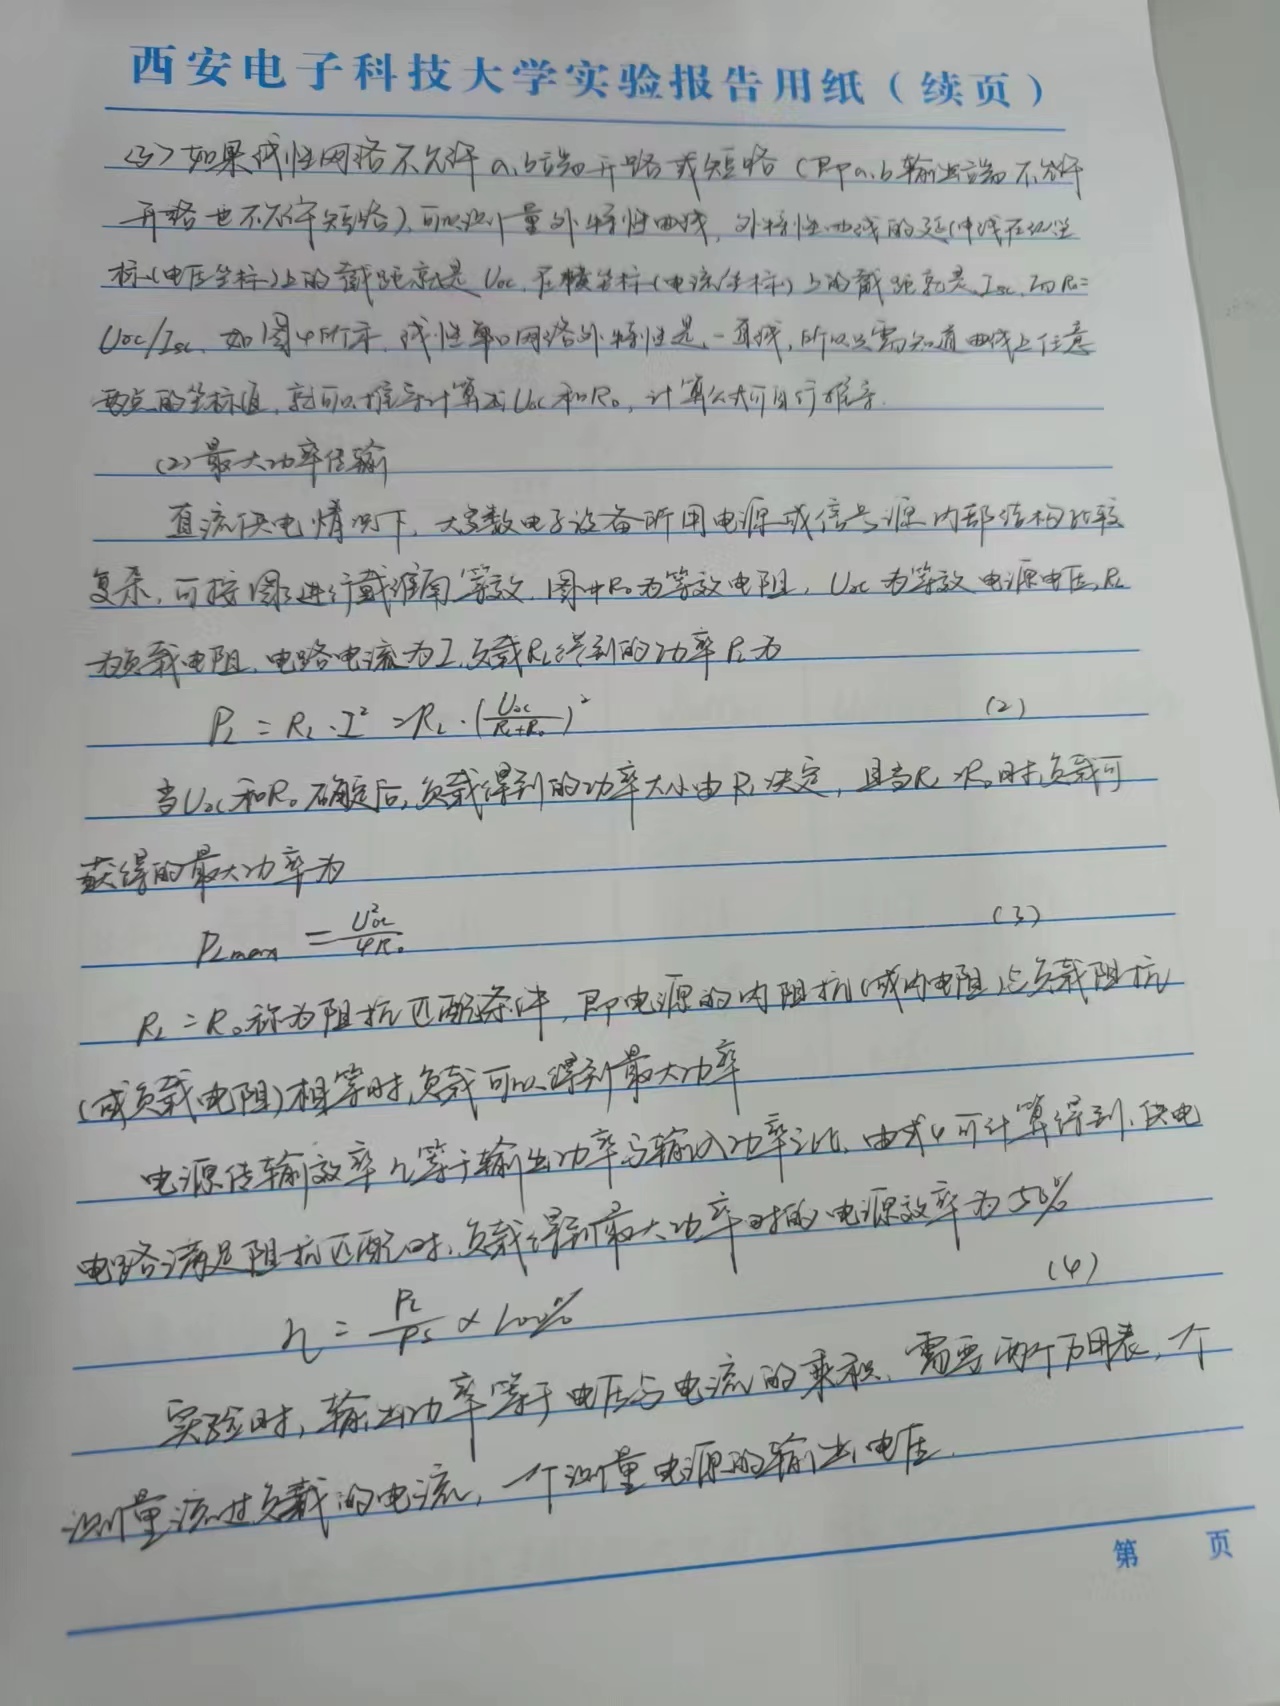 西安电子科技大学实验报告用纸（续页）
<3>如果线性网络不允许a、b端开路或短路（即a、b输出端不允许
开路也不允许短路），可以测量外特性曲线，外特性曲线的延伸线在纵坐
标（电压坐标）上的截距就是Uoc，在横坐标（电流坐标）上的截距就是Isc，而R0=
Uoc/Isc，如图4所示，线性单口网络外特性是一直线，所以只需知道曲线上任意
两点的坐标值，就可以推导计算出Uoc和R0，计算公式可自行推导.
(2)最大功率传输
直流供电情况下，大多数电子设备所用电源或信号源内部结构比较
复杂，可按图3进行戴维南等效，图中R0为等效电阻，Uoc为等效电源电压，RL
为负载电阻，电路电流为I，负载RL得到的功率PL为
PL = RL · I² = RL · (Uoc/(RL+R0))² (2)
当Uoc和R0确定后，负载得到的功率大小由RL决定，且当RL R0时，负载可
获得的最大功率为
PLmax = U²oc/4R0 (3)
RL = R0称为阻抗匹配条件，即电源的内阻抗（或内电阻）与负载阻抗
（或负载电阻）相等时，负载可以得到最大功率
电源传输效率η等于输出功率与输入功率之比，由式4可计算得到，供电
电路满足阻抗匹配时，负载得到最大功率时的电源效率为50%
η = PL/PS × 100% (4)
实验时，输出功率等于电压与电流的乘积，需要两个万用表，一个
测量流过负载的电流，一个测量电源的输出电压.
第 页